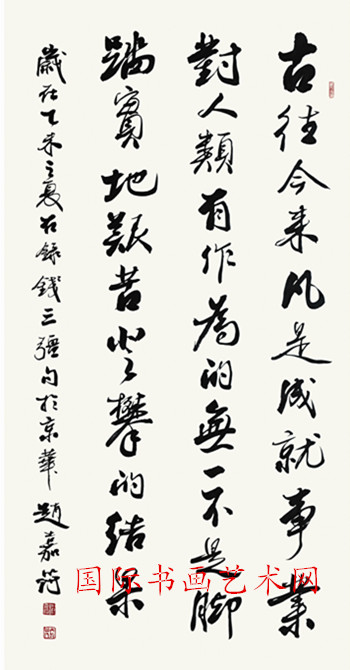 古往今来凡是成就事業
對人類有作為的無一不是脚
踏實地艱苦登攀的結果
歲在乙未之夏右錄錢三彊句於京華趙嘉符
国际书画艺术网